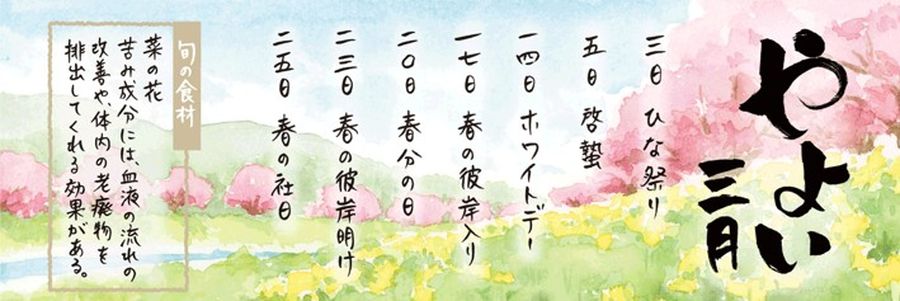 やよい
三月
三日 ひな祭り
五日 啓蟄
一四日 ホワイトデー
一七日 春の彼岸入り
二〇日 春分の日
二三日 春の彼岸明け
二五日 春の社日
旬の食材
菜の花
苦み成分には、血液の流れの
改善や、体内の老廃物を
排出してくれる効果がある。